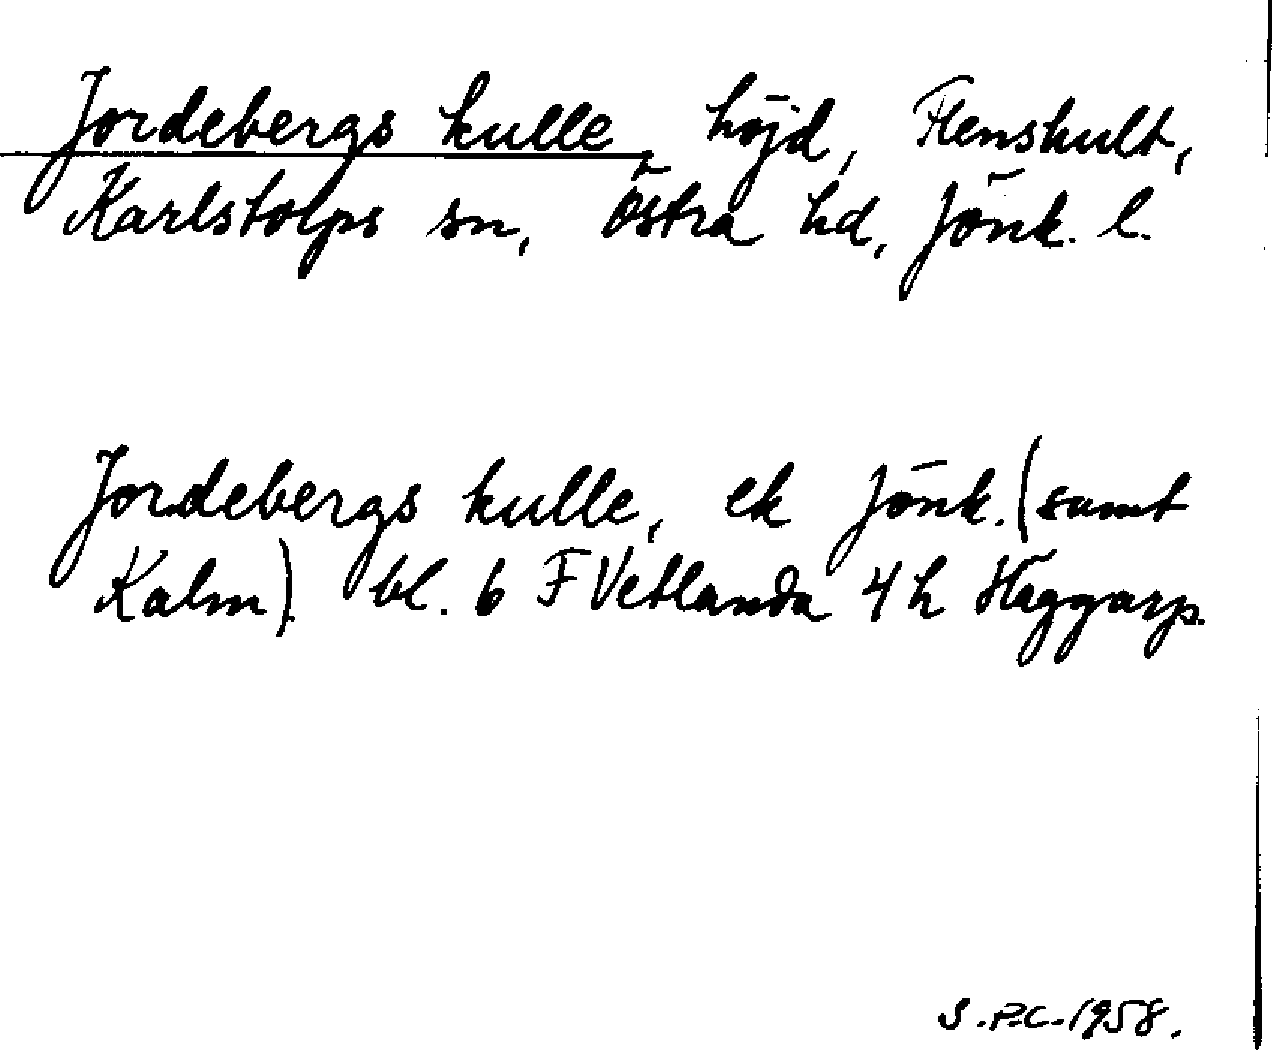 Jordebergs kulle, höjd, Flenshult,
Karlstorps sn, Östra hd, Jönk. l.
Jordebergs kulle, ek Jönk. (samt
Kalm). bl. 6 F Vetlanda 4 h Häggarp.
S.P.C. 1958.